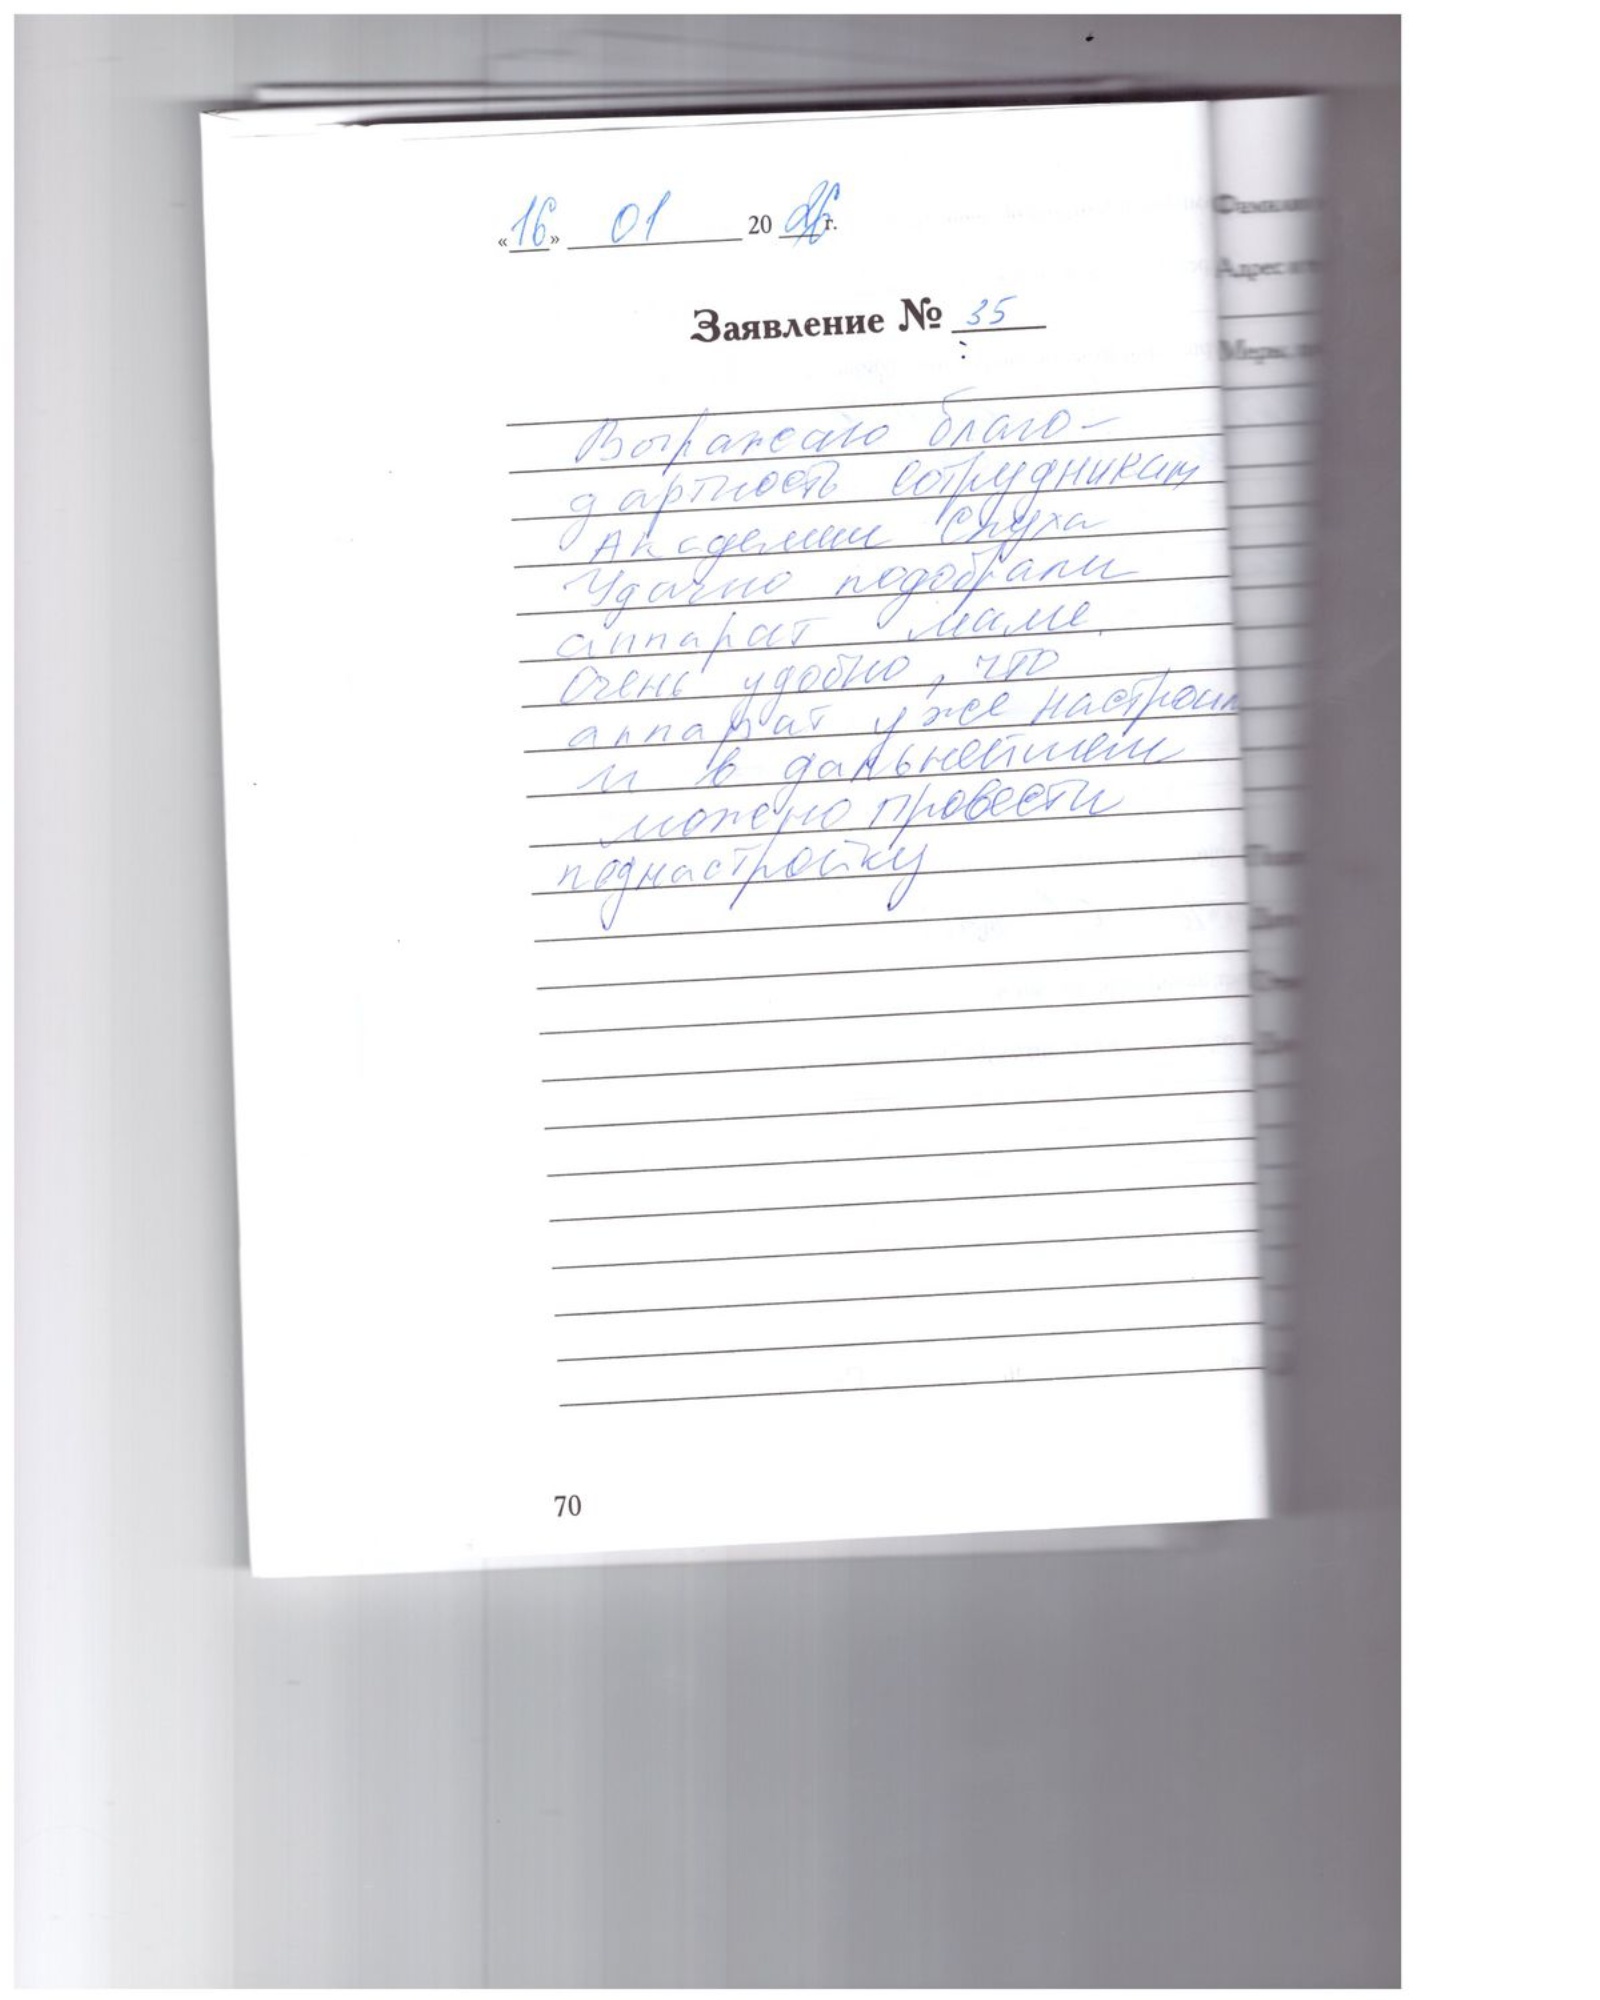 «16» 01 2026 г.
Заявление № 35
Выражаю благо-
дарность сотрудникам
Академии Слуха
Удачно подобрали
аппарат маме.
Очень удобно, что
аппарат уже настроен
и в дальнейшем
можно провести
поднастройку
70
Адрес